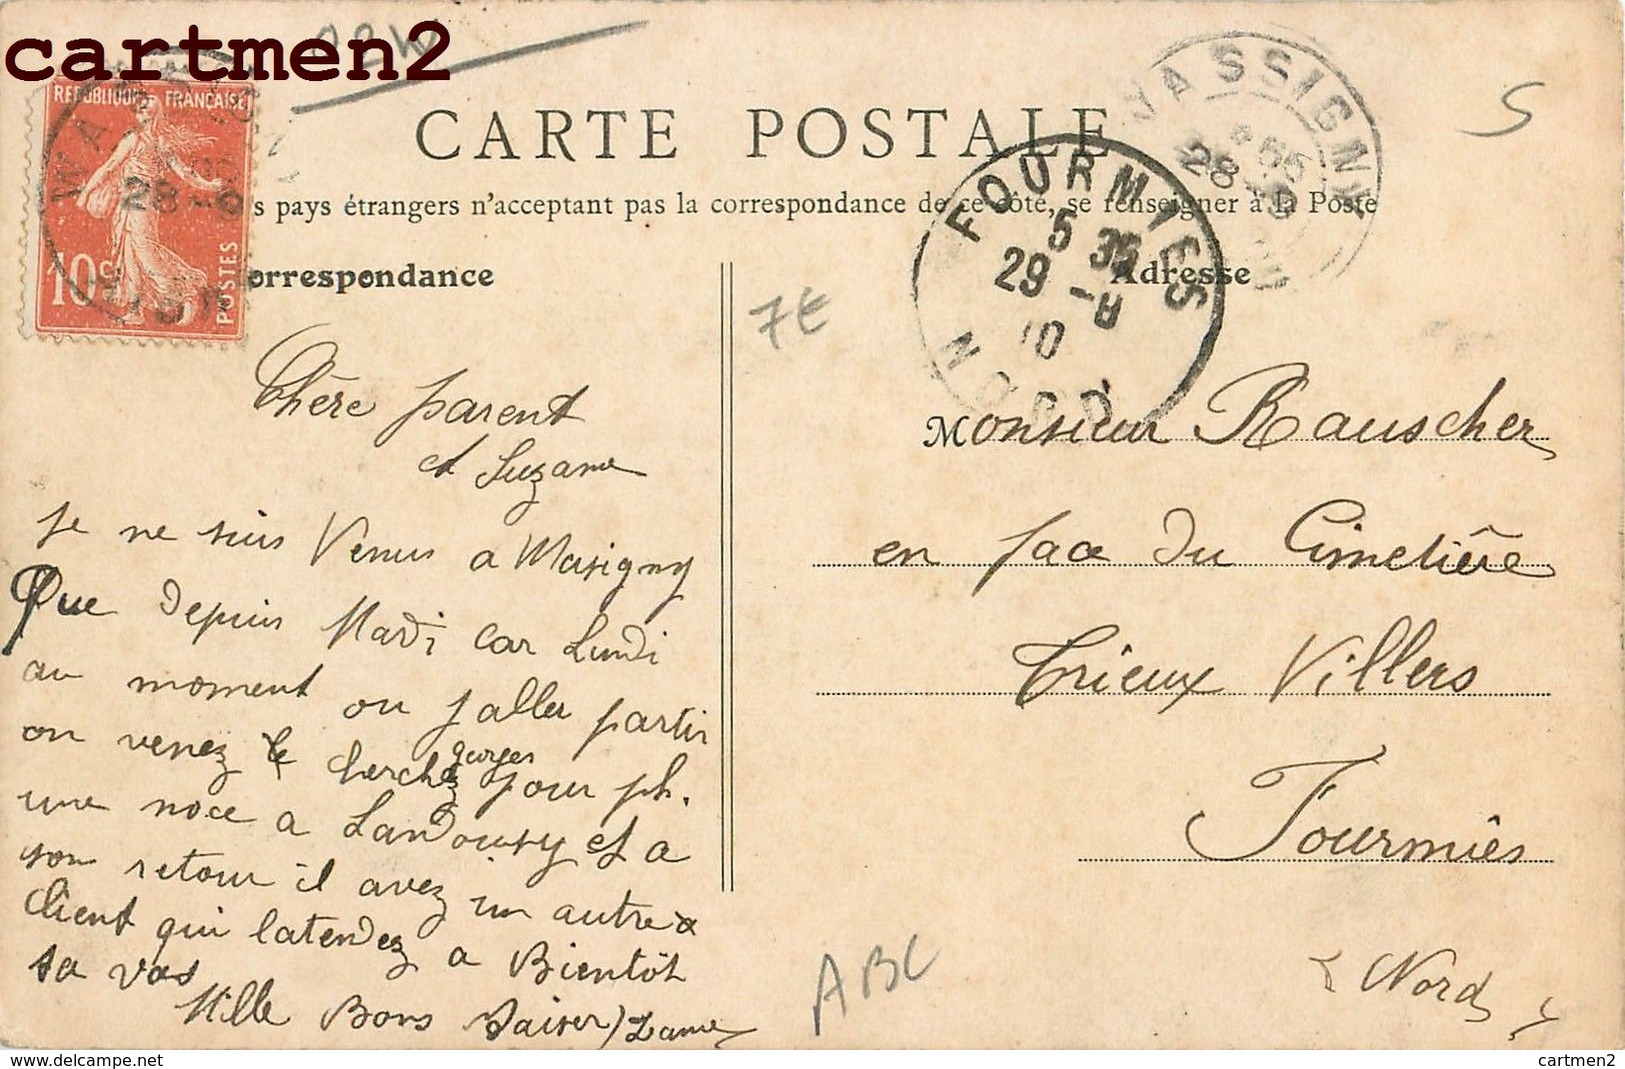 cartmen2
CARTE POSTALE
s pays étrangers n'acceptant pas la correspondance de ce côté, se renseigner à la Poste
orrespondance
Adresse
REPUBLIQUE FRANÇAISE
10c
POSTES
WASSIGNY
28
FOURMIES
5 35
29 -8
10
NORD
7€
S
ABC
Chère parent
et Suzanne
je ne suis Venus a
Que depuis Mardi car Lundi
au moment ou jaller partir
on venez cherchez pour ph.
une noce a Landouzy et a
son retour il avez un autre
Client qui latendez a Bientôt
sa vas
Mille Bons Baiser
Monsieur Rauscher
en face du Cimetière
Trieux Villers
Fourmiês
Nord
delcampe.net
cartmen2